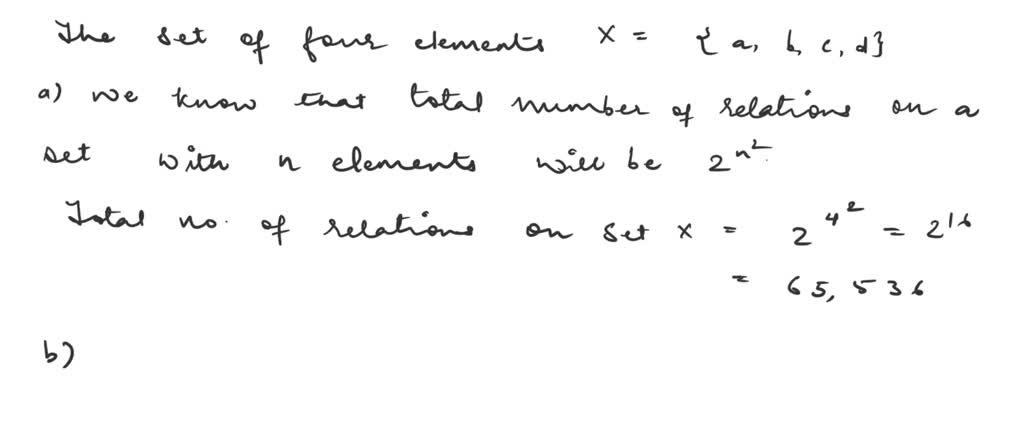 The set of four elements X = { a, b, c, d}
a) we know that total number of relations on a
set with n elements will be 2^n^2.
Total no. of relations on set x = 2^4^2 = 2^16
= 65,536
b)